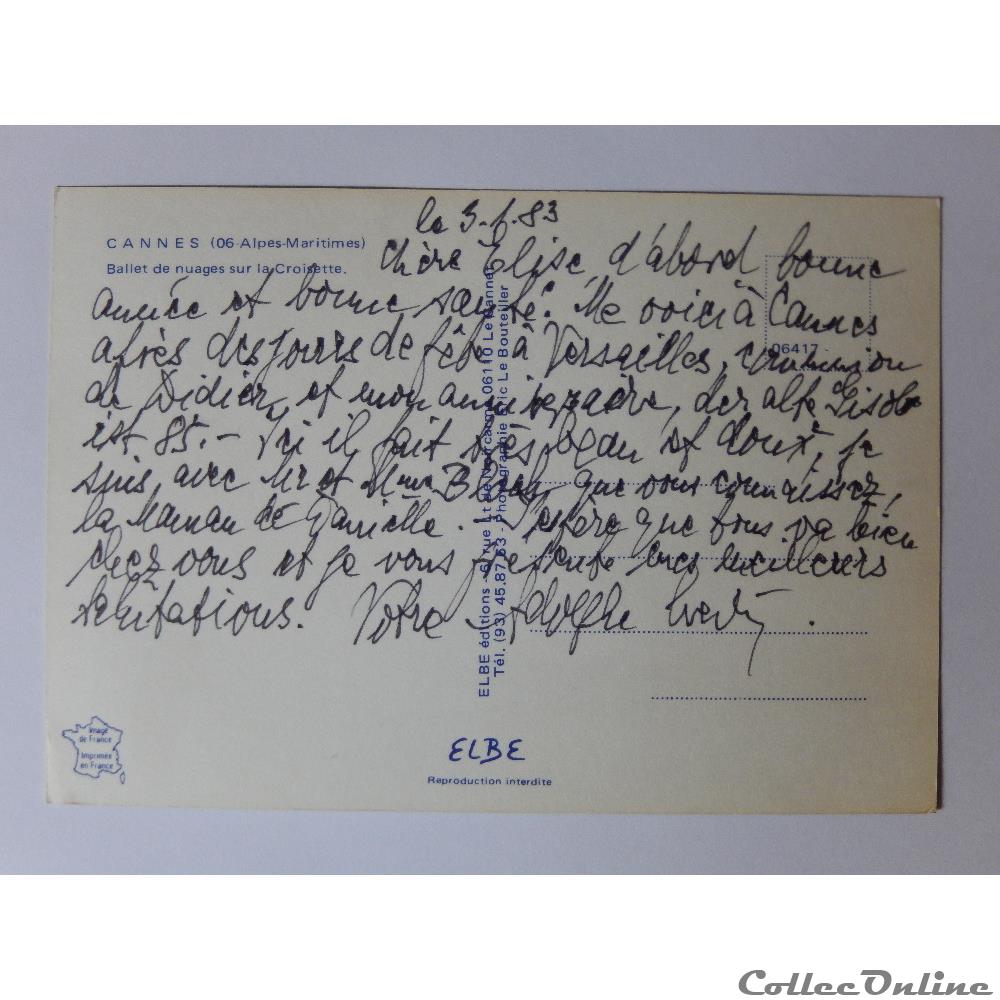 le 3-1-83
CANNES (06-Alpes-Maritimes)
Ballet de nuages sur la Croisette.
Chère Élise, d'abord bonne
année et bonne santé. Me voici à Cannes
après des jours de fête à Versailles, communion
de Didier, et mon anniversaire, der alte
ist 85.- Ici il fait très beau et doux, je
suis avec Mr et Mme que vous connaissez,
la Maman de Danielle. J'espère que tous va bien
chez vous et je vous présente mes meilleurs
salutations. Votre Adolphe
06417
ELBE éditions - 6, rue Lt de 06110 Le Cannet
Tél. (93) 45.87.63 - Photographie Eric Le Bouteiller
Image
de France
Imprimée
en France
ELBE
Reproduction interdite
CollecOnline